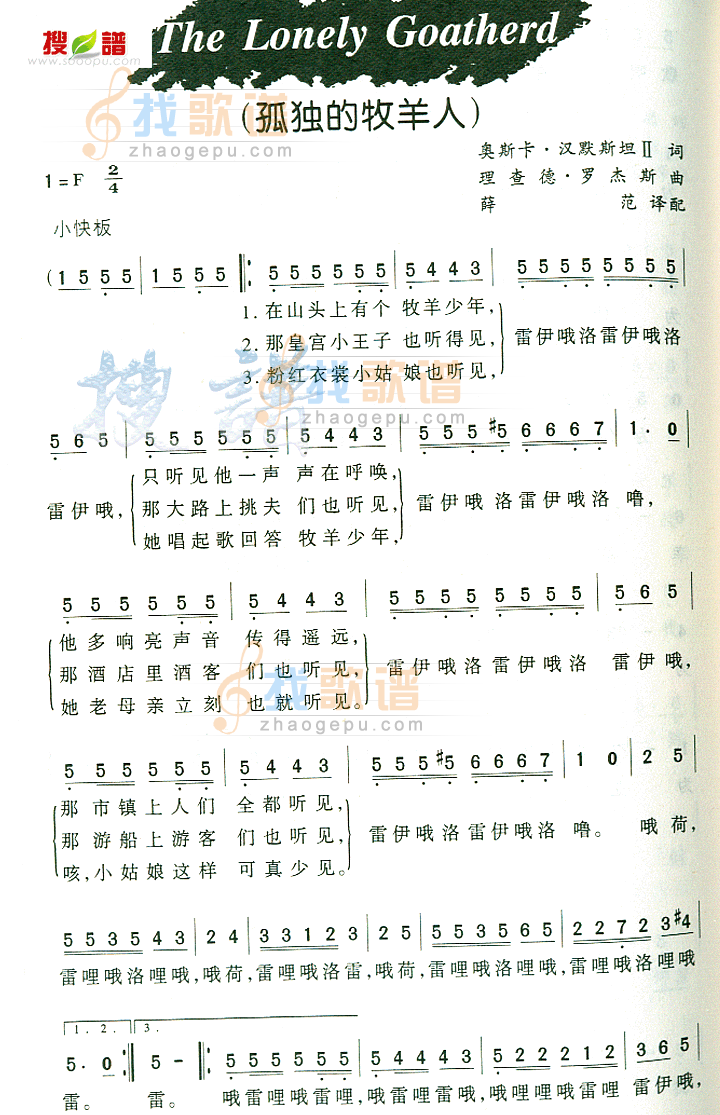 搜谱
www.sooopu.com
The Lonely Goatherd
找歌谱
zhaogepu.com
(孤独的牧羊人)
奥斯卡·汉默斯坦Ⅱ 词
1=F 2/4
理查德·罗杰斯 曲
薛 范 译配
小快板
(1 5 5 5 | 1 5 5 5 ‖: 5 5 5 5 5 5 5 | 5 4 4 3) | 5 5 5 5 5 5 5 5 |
1. 在山头上有个 牧羊少年,
2. 那皇宫小王子 也听得见,
3. 粉红衣裳小姑 娘也听见,
雷伊哦洛雷伊哦洛
搜谱
找歌谱
zhaogepu.com
5 6 5 | 5 5 5 5 5 5 5 | 5 4 4 3 | 5 5 5 #5 6 6 6 7 | 1· 0 |
雷伊哦,
只听见他一声 声在呼唤,
那大路上挑夫 们也听见,
她唱起歌回答 牧羊少年,
雷伊哦 洛雷伊哦洛 噜,
5 5 5 5 5 5 5 | 5 4 4 3 | 5 5 5 5 5 5 5 5 | 5 6 5 |
他多响亮声音 传得遥远,
那酒店里酒客 们也听见,
她老母亲立刻 也就听见。
雷伊哦洛雷伊哦洛 雷伊哦,
找歌谱
zhaogepu.com
5 5 5 5 5 5 5 | 5 4 4 3 | 5 5 5 #5 6 6 6 7 | 1 0 | 2 5 |
那市镇上人们 全都听见,
那游船上游客 们也听见,
咳,小姑娘这样 可真少见。
雷伊哦洛雷伊哦洛 噜。 哦荷,
5 5 3 5 4 3 | 2 4 | 3 3 1 2 3 | 2 5 | 5 5 3 5 6 5 | 2 2 7 2 3 #4 |
雷哩哦洛哩哦,哦荷,雷哩哦洛雷,哦荷,雷哩哦洛哩哦,雷哩哦洛哩哦
1. 2. 3.
5· 0 :‖ 5 - ‖: 5 5 5 5 5 5 5 | 5 4 4 4 3 | 5 2 2 2 1 2 | 3 6 5 |
雷。 雷。 哦雷哩哦雷哩,哦雷哩哦雷哦,哦哩哦雷哦雷哩 雷伊哦,